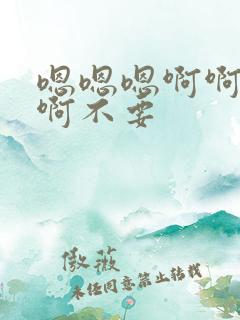 嗯嗯嗯啊啊
啊不要
傲薇
未经同意禁止转载